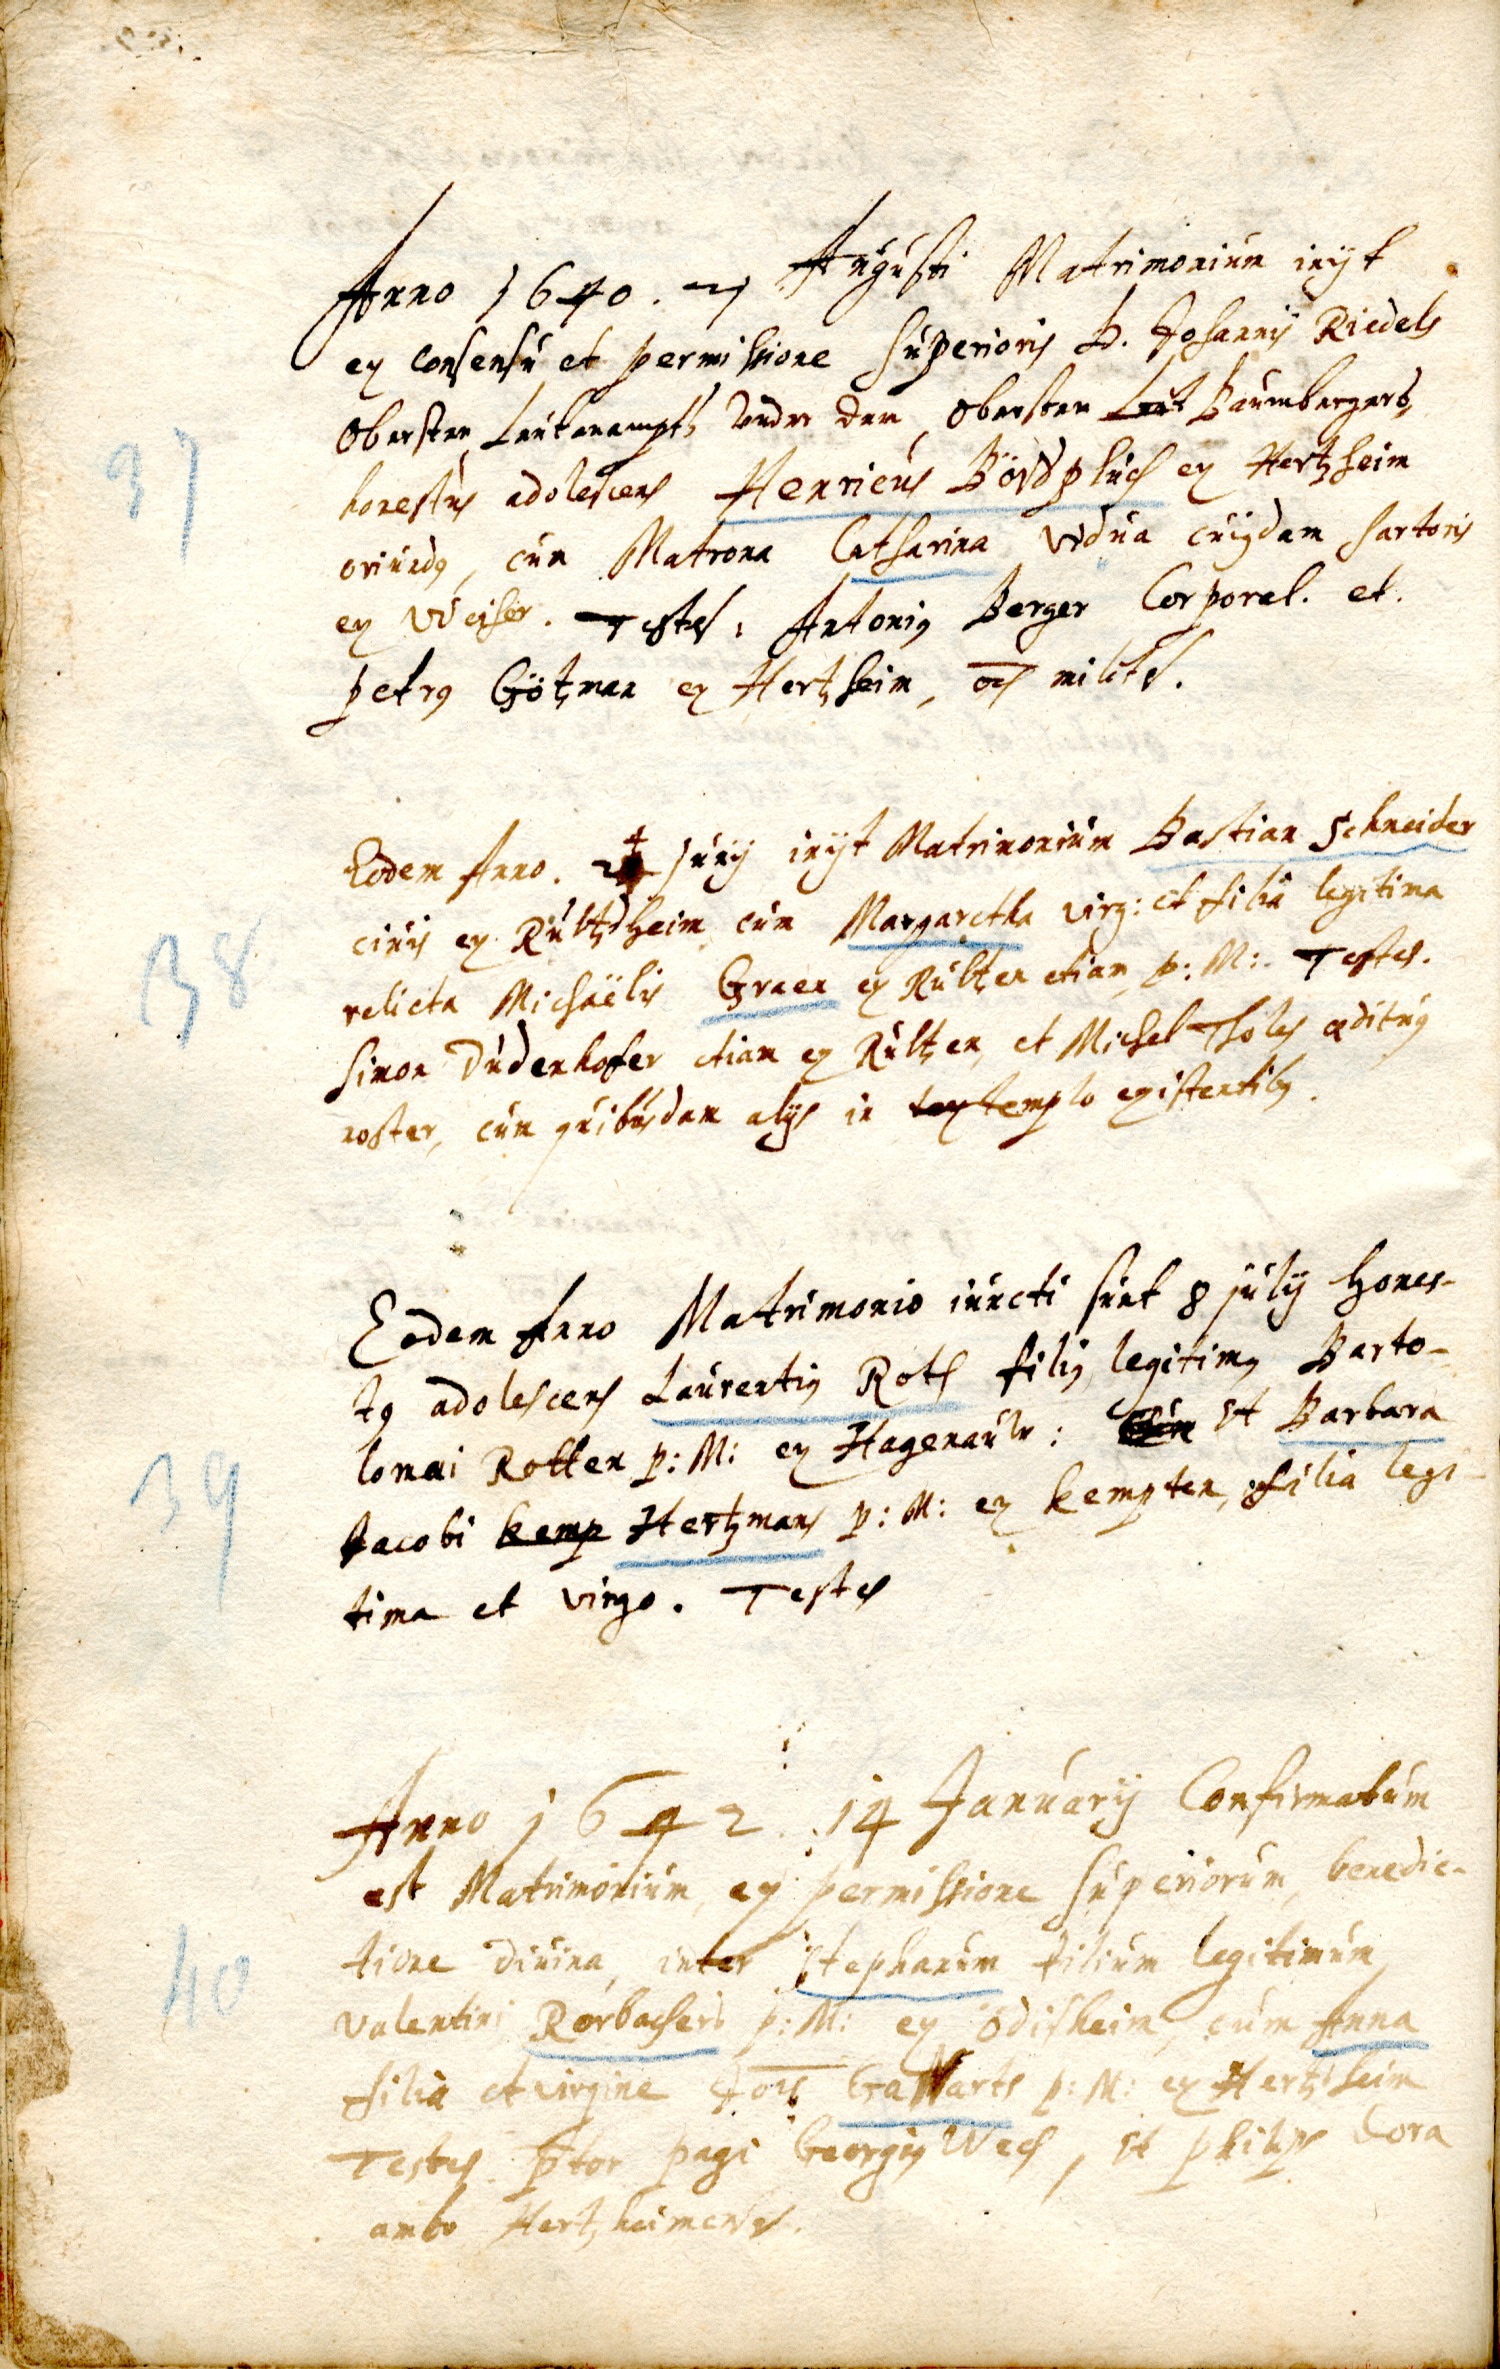 Anno 1640. 21 Augusti Matrimonium inijt
ex consensu et permissione superioris D. Johannis Riedels
Obersten Leutenampts under dem Obersten Baumbergers,
37
honestus adolescens Henricus ex Hertzheim
oriundus, cum Matrona Catharina vidua cuiusdam sartoris
ex Weiser. Testes: Antonius Berger Corporal. et
petrus Götzman ex Hertzheim, milites.
Eodem Anno. Junij inijt Matrimonium Bastian Schneider
civis ex Rültzheim cum Margaretha virg: et filia legitima
38
relicta Michaëlis Graen ex Rültzen etiam p: M:. Testes.
Simon Dudenhofer etiam ex Rültzen, et Michel Tholes ædituus
noster, cum quibusdam alijs in templo existentibus.
Eodem Anno Matrimonio iuncti sunt 8 julij hones-
tus adolescens Laurentius Roth filius legitimus Barto-
lomæi Rotten p: M: ex Hagenauw: et Barbara
39
Jacobi kemp Hertzmans p: M: ex kempten, filia legi-
tima et virgo. Testes
Anno 1642. 14 Januarij Confirmatum
est Matrimonium, ex permissione superiorum, benedic-
40
tione divina, inter Stephanum filium legitimum
Valentini Rorbachers p: M: ex Ödisheim, cum Anna
filia et virgine p: M: ex Hertzheim
Testes pagi Georgius Wech, et philips Cora
ambo Hertzheimenses.